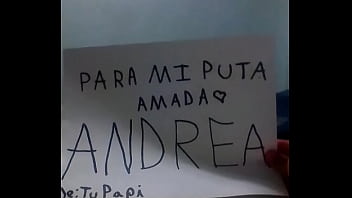 PARA MI PUTA
AMADA♡
ANDREA
De: Tu Papi